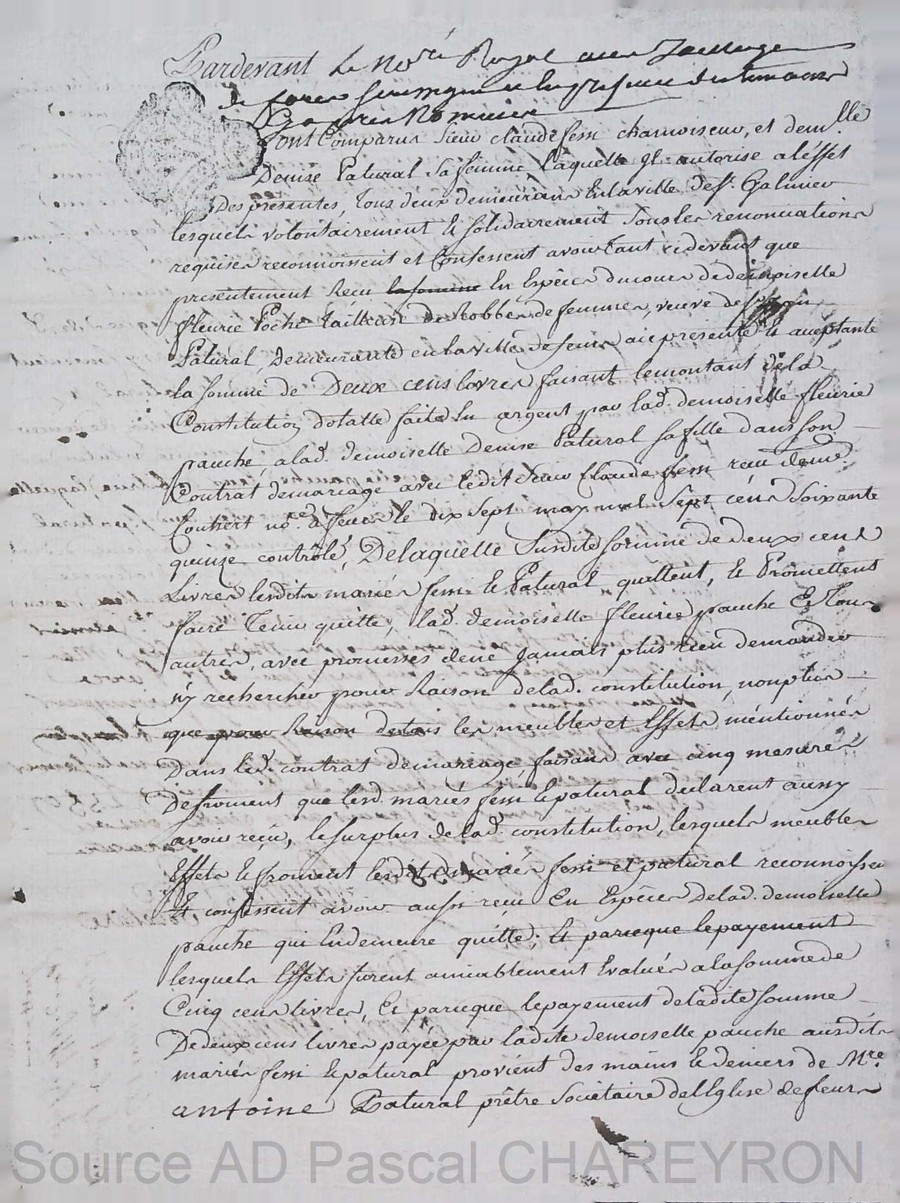 Pardevant Le No.re Royal
de forez soussigné et En presence des temoins
Cy apres Nommés
Ont Comparus Sieur claude fessi chamoiseur, et dem.lle
Denise Patural Sa femme Laquelle Il autorise a l'éffet
Des presentes, tous deux demeurans En la ville de S.t Galmier
lesquels volontairement et solidairement Sous les renonciations
requises reconnoissent et Confessent avoir tant cidevant que
presentement Recu la somme En Espèces du cours de demoiselle
fleurie Poche tailleuse de Robbes de femmes, veuve de
Patural, Demeurante en la ville de feurs aicy presente et acceptante
la somme de Deux cens livres faisant le montant de la
Constitution dotalle faite En argent par lad. demoiselle fleurie
pauche, a lad. demoiselle Denise Patural sa fille dans son
Contrat de mariage avec ledit Sieur Claude fessi recu de me
no.re a feurs le dix sept may mil Sept cens Soixante
quinze contrôlé, De laquelle Susdite Somme de deux cens
Livres lesdits mariés fessi et Patural quittent, et Promettent
faire Tenir quitte, lad. demoiselle fleurie pauche Et tous
autres, avec promesses de ne Jamais plus rien demander
n'y rechercher pour Raison de lad. constitution, non plus
que pour Raison de tous les meubles et Effets méntionnés
Dans led. contrat de mariage, faisans avec cinq mesures
De froment que lesd. mariés fessi et patural déclarent aussy
avoir reçu, le surplus de lad. constitution, lesquels meubles
Effets et froment lesdits mariés fessi et patural reconnoisse
et confessent avoir aussi reçu En Espèces De lad. demoiselle
pauche qui En demeure quitte, et parceque le payement
lesquels Effets furent amiablement Evalués a la somme de
Cinq cens livres, Et parceque le payement de ladite Somme
De deux cens livres payée par ladite demoiselle pauche ausdits
mariés fessi et patural provient des mains et deniers de M.re
antoine Patural prêtre Sociétaire de l'Eglise de feurs
Source AD Pascal CHAREYRON